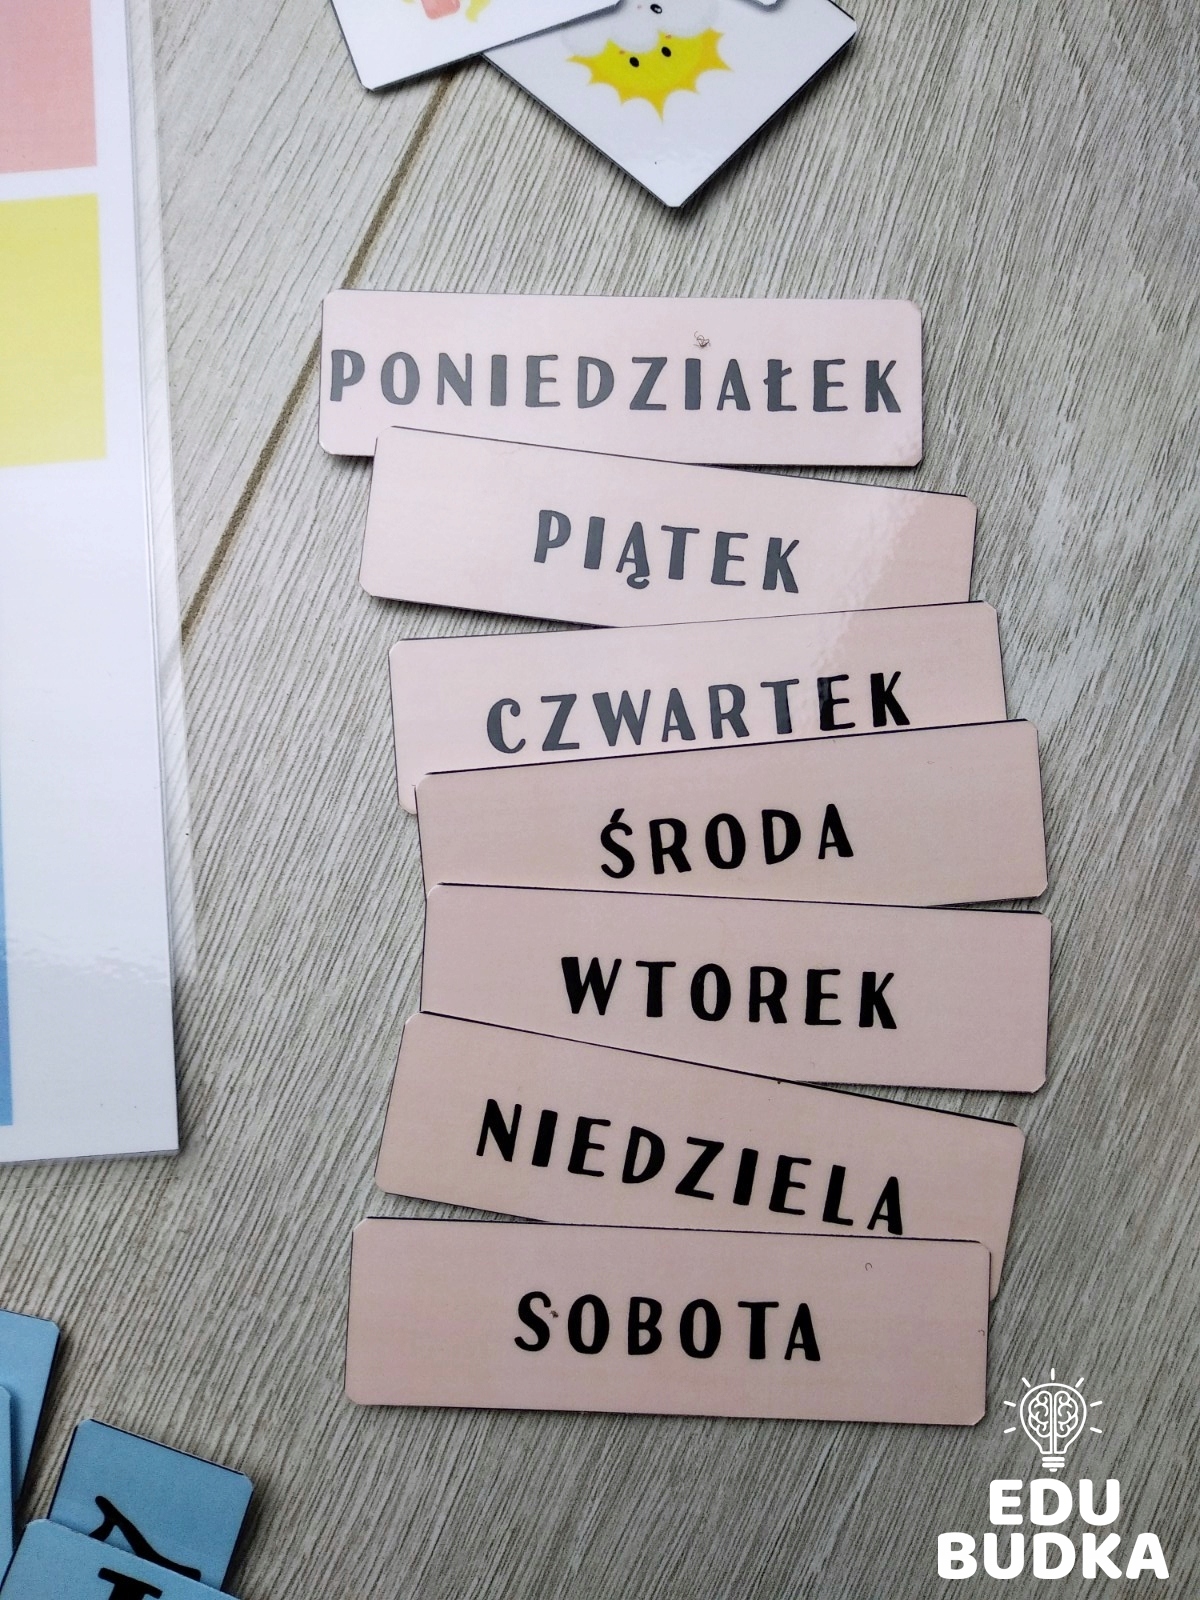 PONIEDZIAŁEK
PIĄTEK
CZWARTEK
ŚRODA
WTOREK
NIEDZIELA
SOBOTA
EDU
BUDKA